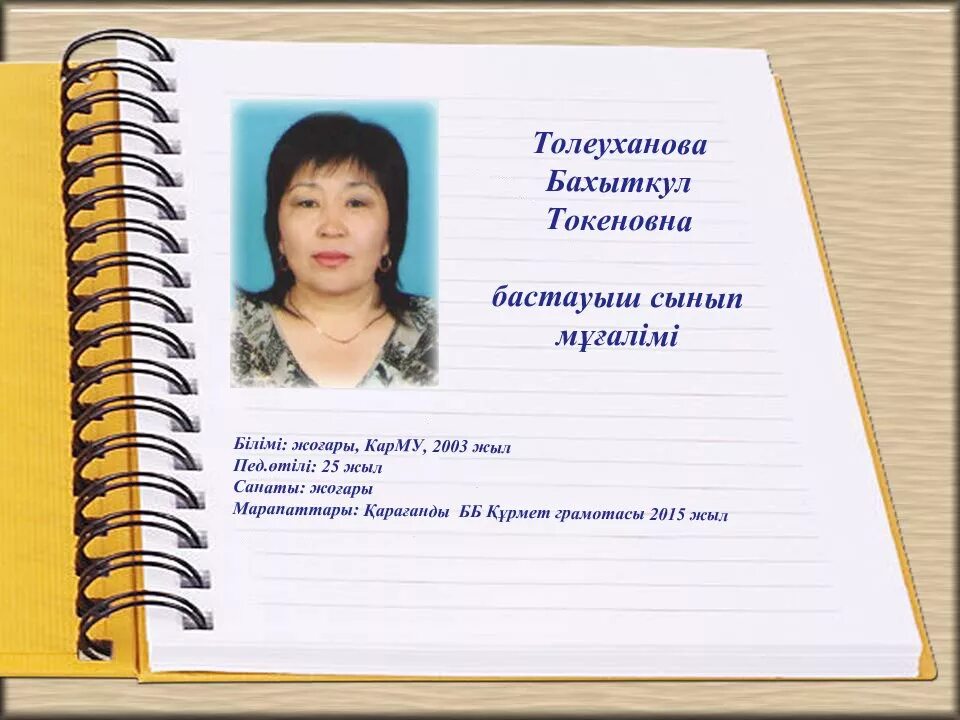 Толеуханова
Бахыткул
Токеновна
бастауыш сынып
мұғалімі
Білімі: жоғары, КарМУ, 2003 жыл
Пед.өтілі: 25 жыл
Санаты: жоғары
Марапаттары: Қарағанды ББ Құрмет грамотасы 2015 жыл